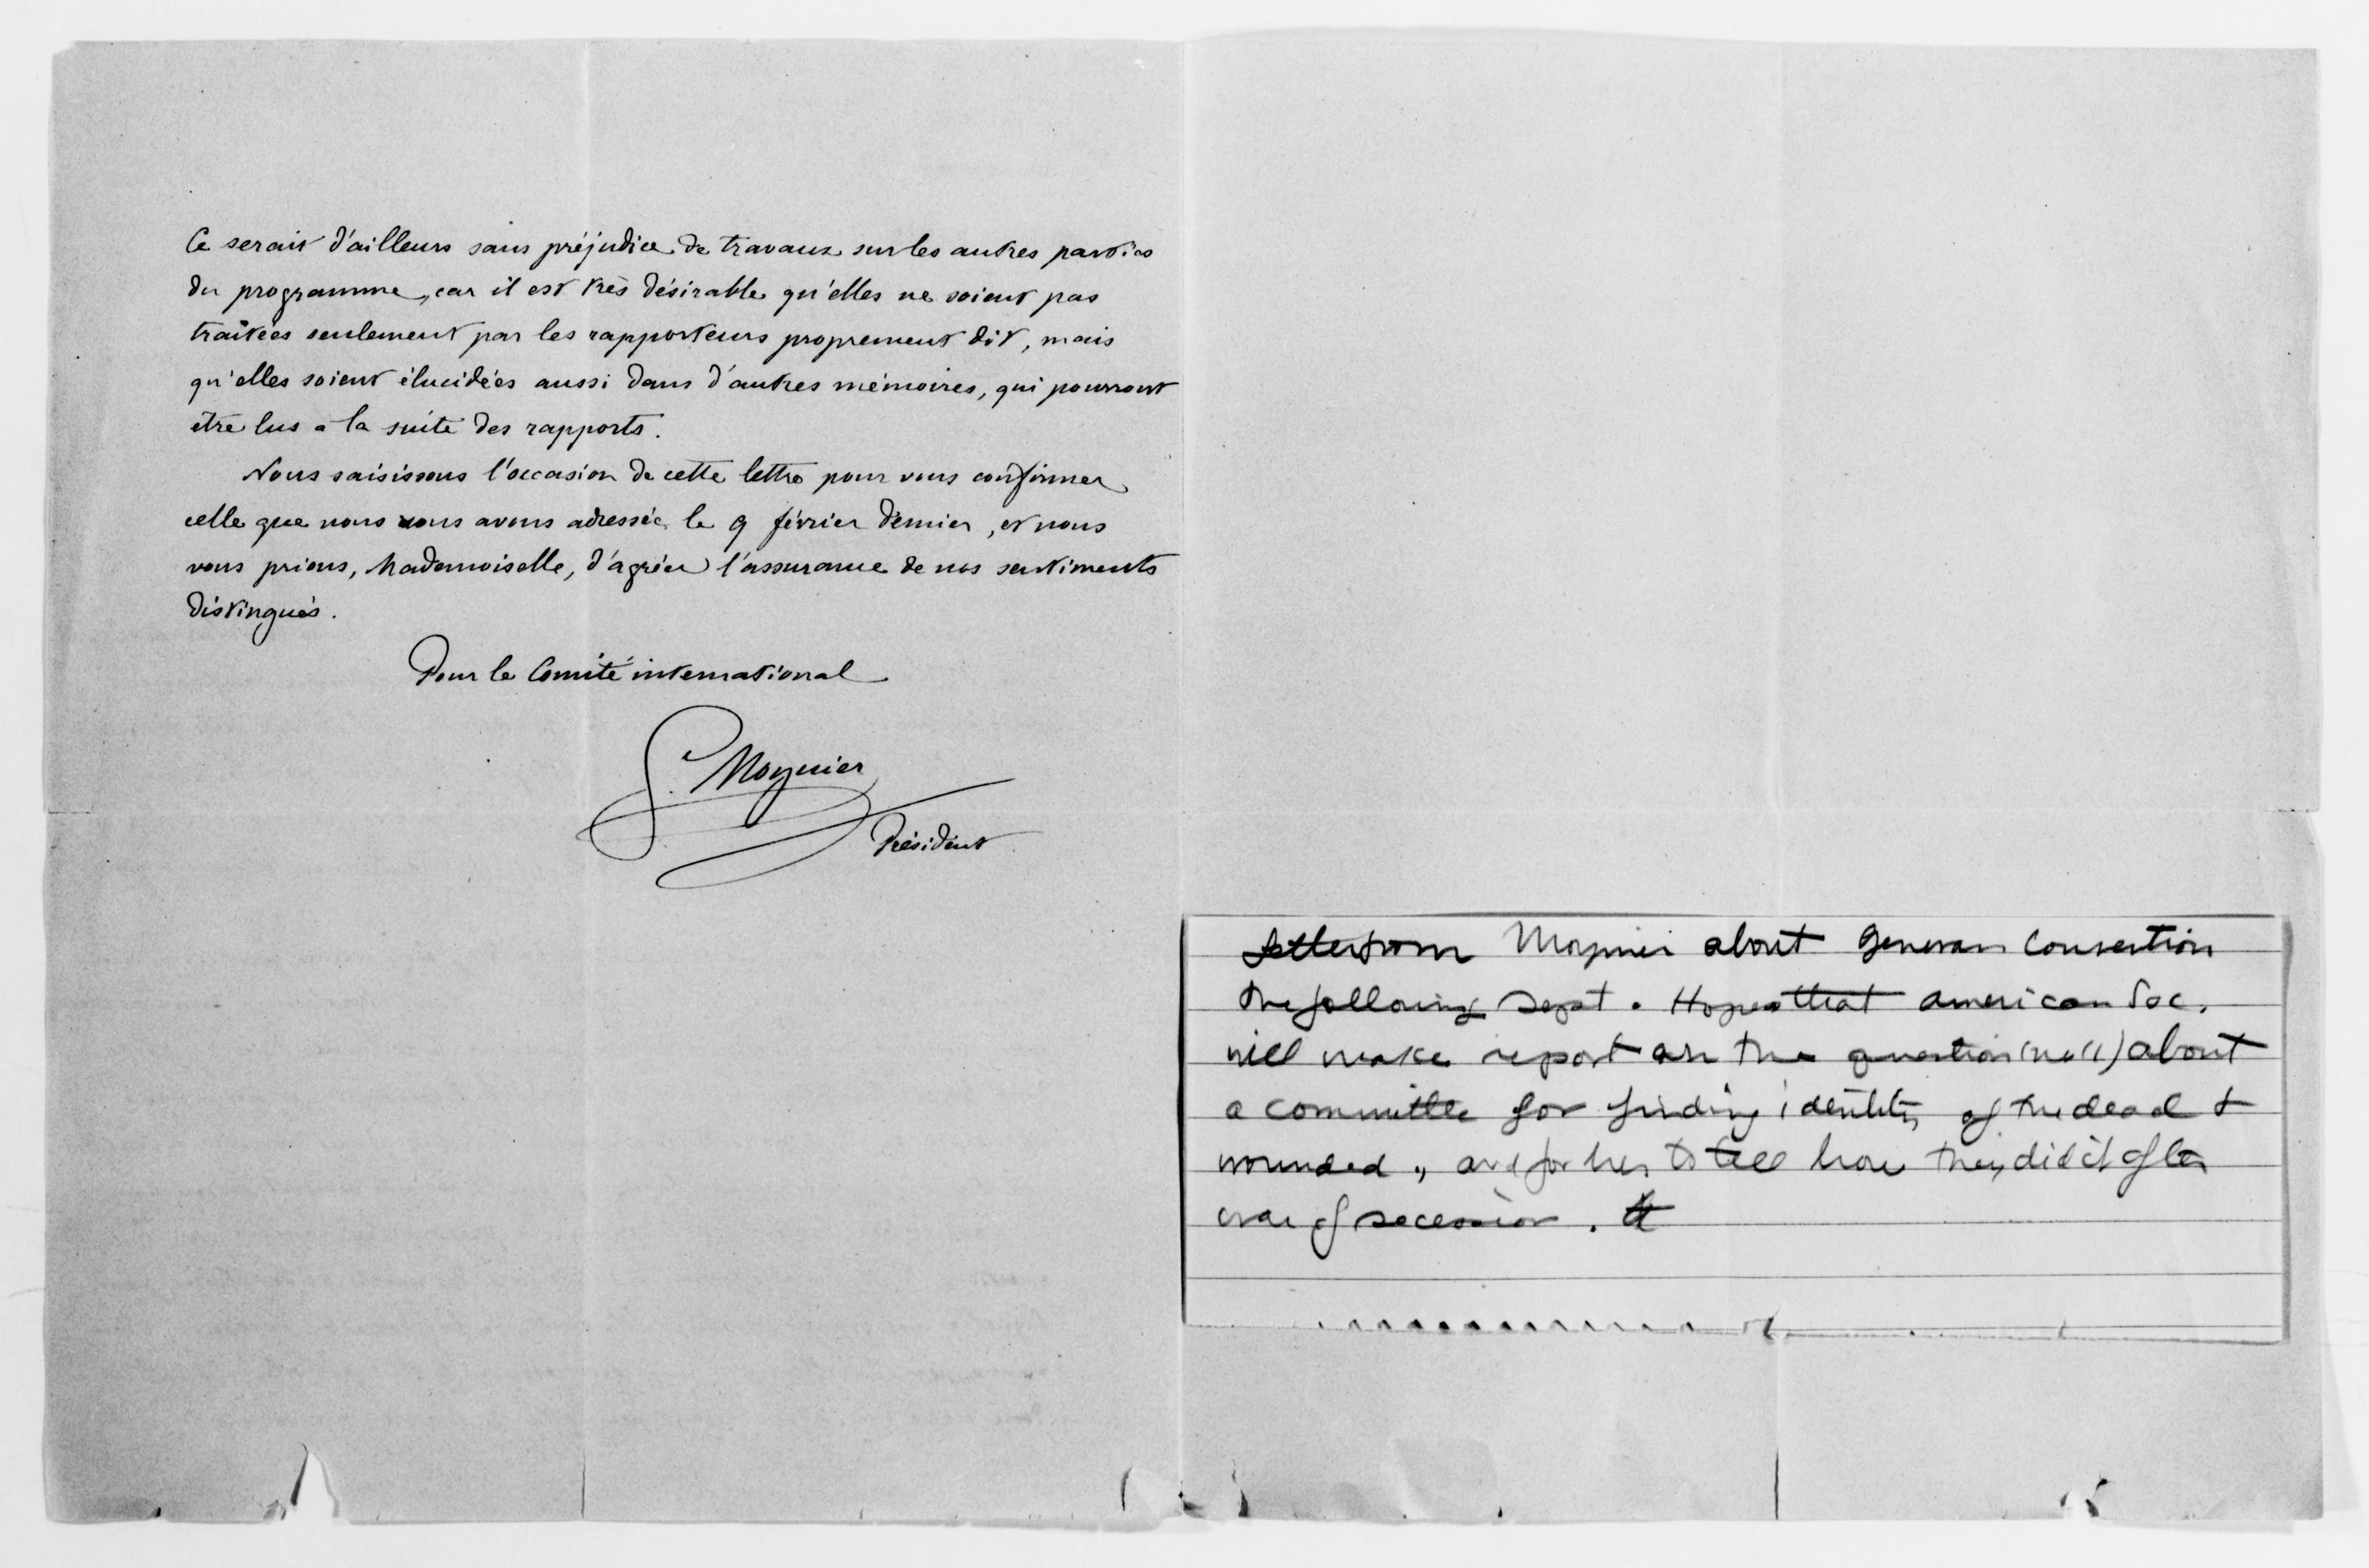 Ce serait d'ailleurs sans préjudice de travaux sur les autres parties
du programme, car il est très désirable qu'elles ne soient pas
traitées seulement par les rapporteurs proprement dit, mais
qu'elles soient élucidées aussi dans d'autres mémoires, qui pourront
être lus à la suite des rapports.
Nous saisissons l'occasion de cette lettre pour vous confirmer
celle que nous vous avons adressée le 9 février dernier, et nous
vous prions, Mademoiselle, d'agréer l'assurance de nos sentiments
distingués.
Pour le Comité international
G. Moynier
Président
Letter from Moynier about Genevan Convention
the following Sept. Hopes that american Soc.
will make report on the question (no 11) about
a committee for finding identity of the dead &
wounded, and for her to tell how they did it after
war of secession.